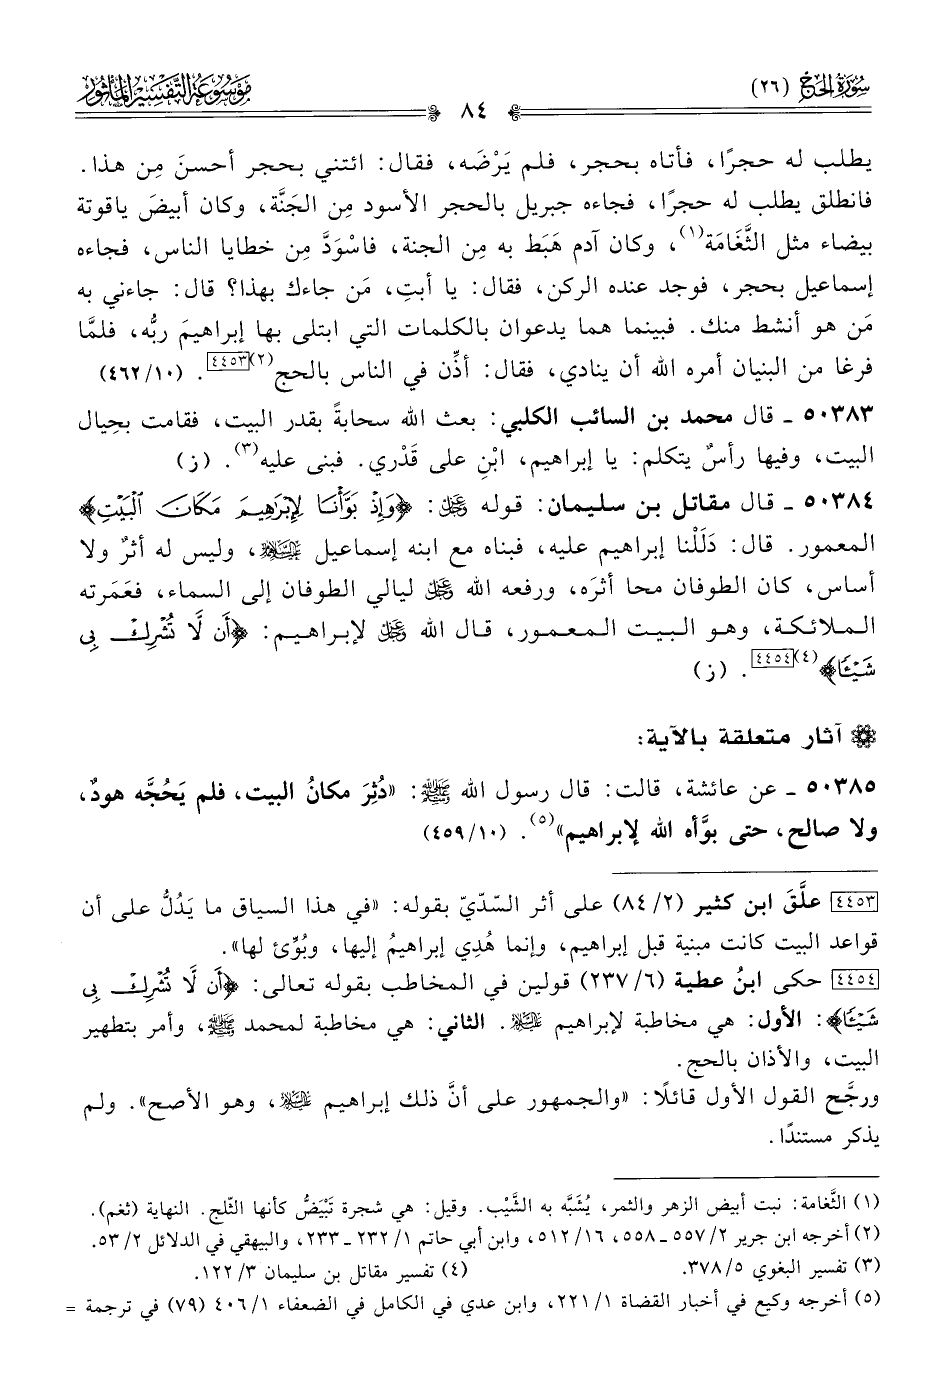 سُورَةُ الحَجِّ (٢٦)
٨٤
مَوْسُوعَةُ التَّفْسِيرِ المَأْثُور
يطلب له حجرًا، فأتاه بحجر، فلم يَرْضَه، فقال: ائتني بحجر أحسنَ مِن هذا.
فانطلق يطلب له حجرًا، فجاءه جبريل بالحجر الأسود مِن الجَنَّة، وكان أبيضَ ياقوتة
بيضاء مثل الثَّغَامَة(١)، وكان آدم هَبَط به مِن الجنة، فاسْوَدَّ مِن خطايا الناس، فجاءه
إسماعيل بحجر، فوجد عنده الركن، فقال: يا أبتِ، مَن جاءك بهذا؟ قال: جاءني به
مَن هو أنشط منك. فبينما هما يدعوان بالكلمات التي ابتلى بها إبراهيمَ ربُّه، فلمَّا
فرغا من البنيان أمره الله أن ينادي، فقال: أذِّن في الناس بالحج(٢)[٤٤٥٣]. (١٠/ ٤٦٢)
٥٠٣٨٣ ـ قال محمد بن السائب الكلبي: بعث الله سحابةً بقدر البيت، فقامت بحِيال
البيت، وفيها رأسٌ يتكلم: يا إبراهيم، ابْنِ على قَدْري. فبنى عليه(٣). (ز)
٥٠٣٨٤ ـ قال مقاتل بن سليمان: قوله ﷿: ﴿وَإِذْ بَوَّأْنَا لِإِبْرَٰهِيمَ مَكَانَ ٱلْبَيْتِ﴾
المعمور. قال: دَلَلْنا إبراهيم عليه، فبناه مع ابنه إسماعيل ﵉، وليس له أثرٌ ولا
أساس، كان الطوفان محا أثرَه، ورفعه الله ﷿ ليالي الطوفان إلى السماء، فعَمَرته
الملائكة، وهو البيت المعمور، قال الله ﷿ لإبراهيم: ﴿أَن لَّا تُشْرِكْ بِى
شَيْـًٔا﴾(٤)[٤٤٥٤]. (ز)
آثار متعلقة بالآية:
٥٠٣٨٥ ـ عن عائشة، قالت: قال رسول الله ﷺ: «دُثِرَ مكانُ البيت، فلم يَحُجَّه هودٌ،
ولا صالح، حتى بوَّأه الله لإبراهيم»(٥). (١٠/ ٤٥٩)
[٤٤٥٣] علَّقَ ابن كثير (٢/ ٨٤) على أثر السّدّيّ بقوله: «في هذا السياق ما يَدُلُّ على أن
قواعد البيت كانت مبنية قبل إبراهيم، وإنما هُدِي إبراهيمُ إليها، وبُوِّئ لها».
[٤٤٥٤] حكى ابنُ عطية (٦/ ٢٣٧) قولين في المخاطب بقوله تعالى: ﴿أَن لَّا تُشْرِكْ بِى
شَيْـًٔا﴾: الأول: هي مخاطبة لإبراهيم ﵇. الثاني: هي مخاطبة لمحمد ﷺ، وأمر بتطهير
البيت، والأذان بالحج.
ورجَّح القول الأول قائلًا: «والجمهور على أنَّ ذلك إبراهيم ﵇، وهو الأصح». ولم
يذكر مستندًا.
(١) الثَّغامة: نبت أبيض الزهر والثمر، يُشَبَّه به الشَّيْب. وقيل: هي شجرة تَبْيَضُّ كأنها الثّلج. النهاية (ثغم).
(٢) أخرجه ابن جرير ٢/ ٥٥٧ ـ ٥٥٨، ١٦/ ٥١٢، وابن أبي حاتم ١/ ٢٣٢ ـ ٢٣٣، والبيهقي في الدلائل ٢/ ٥٣.
(٣) تفسير البغوي ٥/ ٣٧٨. (٤) تفسير مقاتل بن سليمان ٣/ ١٢٢.
(٥) أخرجه وكيع في أخبار القضاة ١/ ٢٢١، وابن عدي في الكامل في الضعفاء ١/ ٤٠٦ (٧٩) في ترجمة =